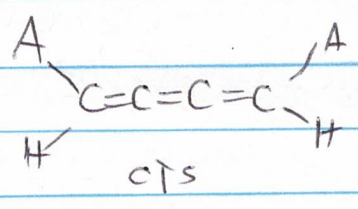 A A
C=C=C=C
H H
cis